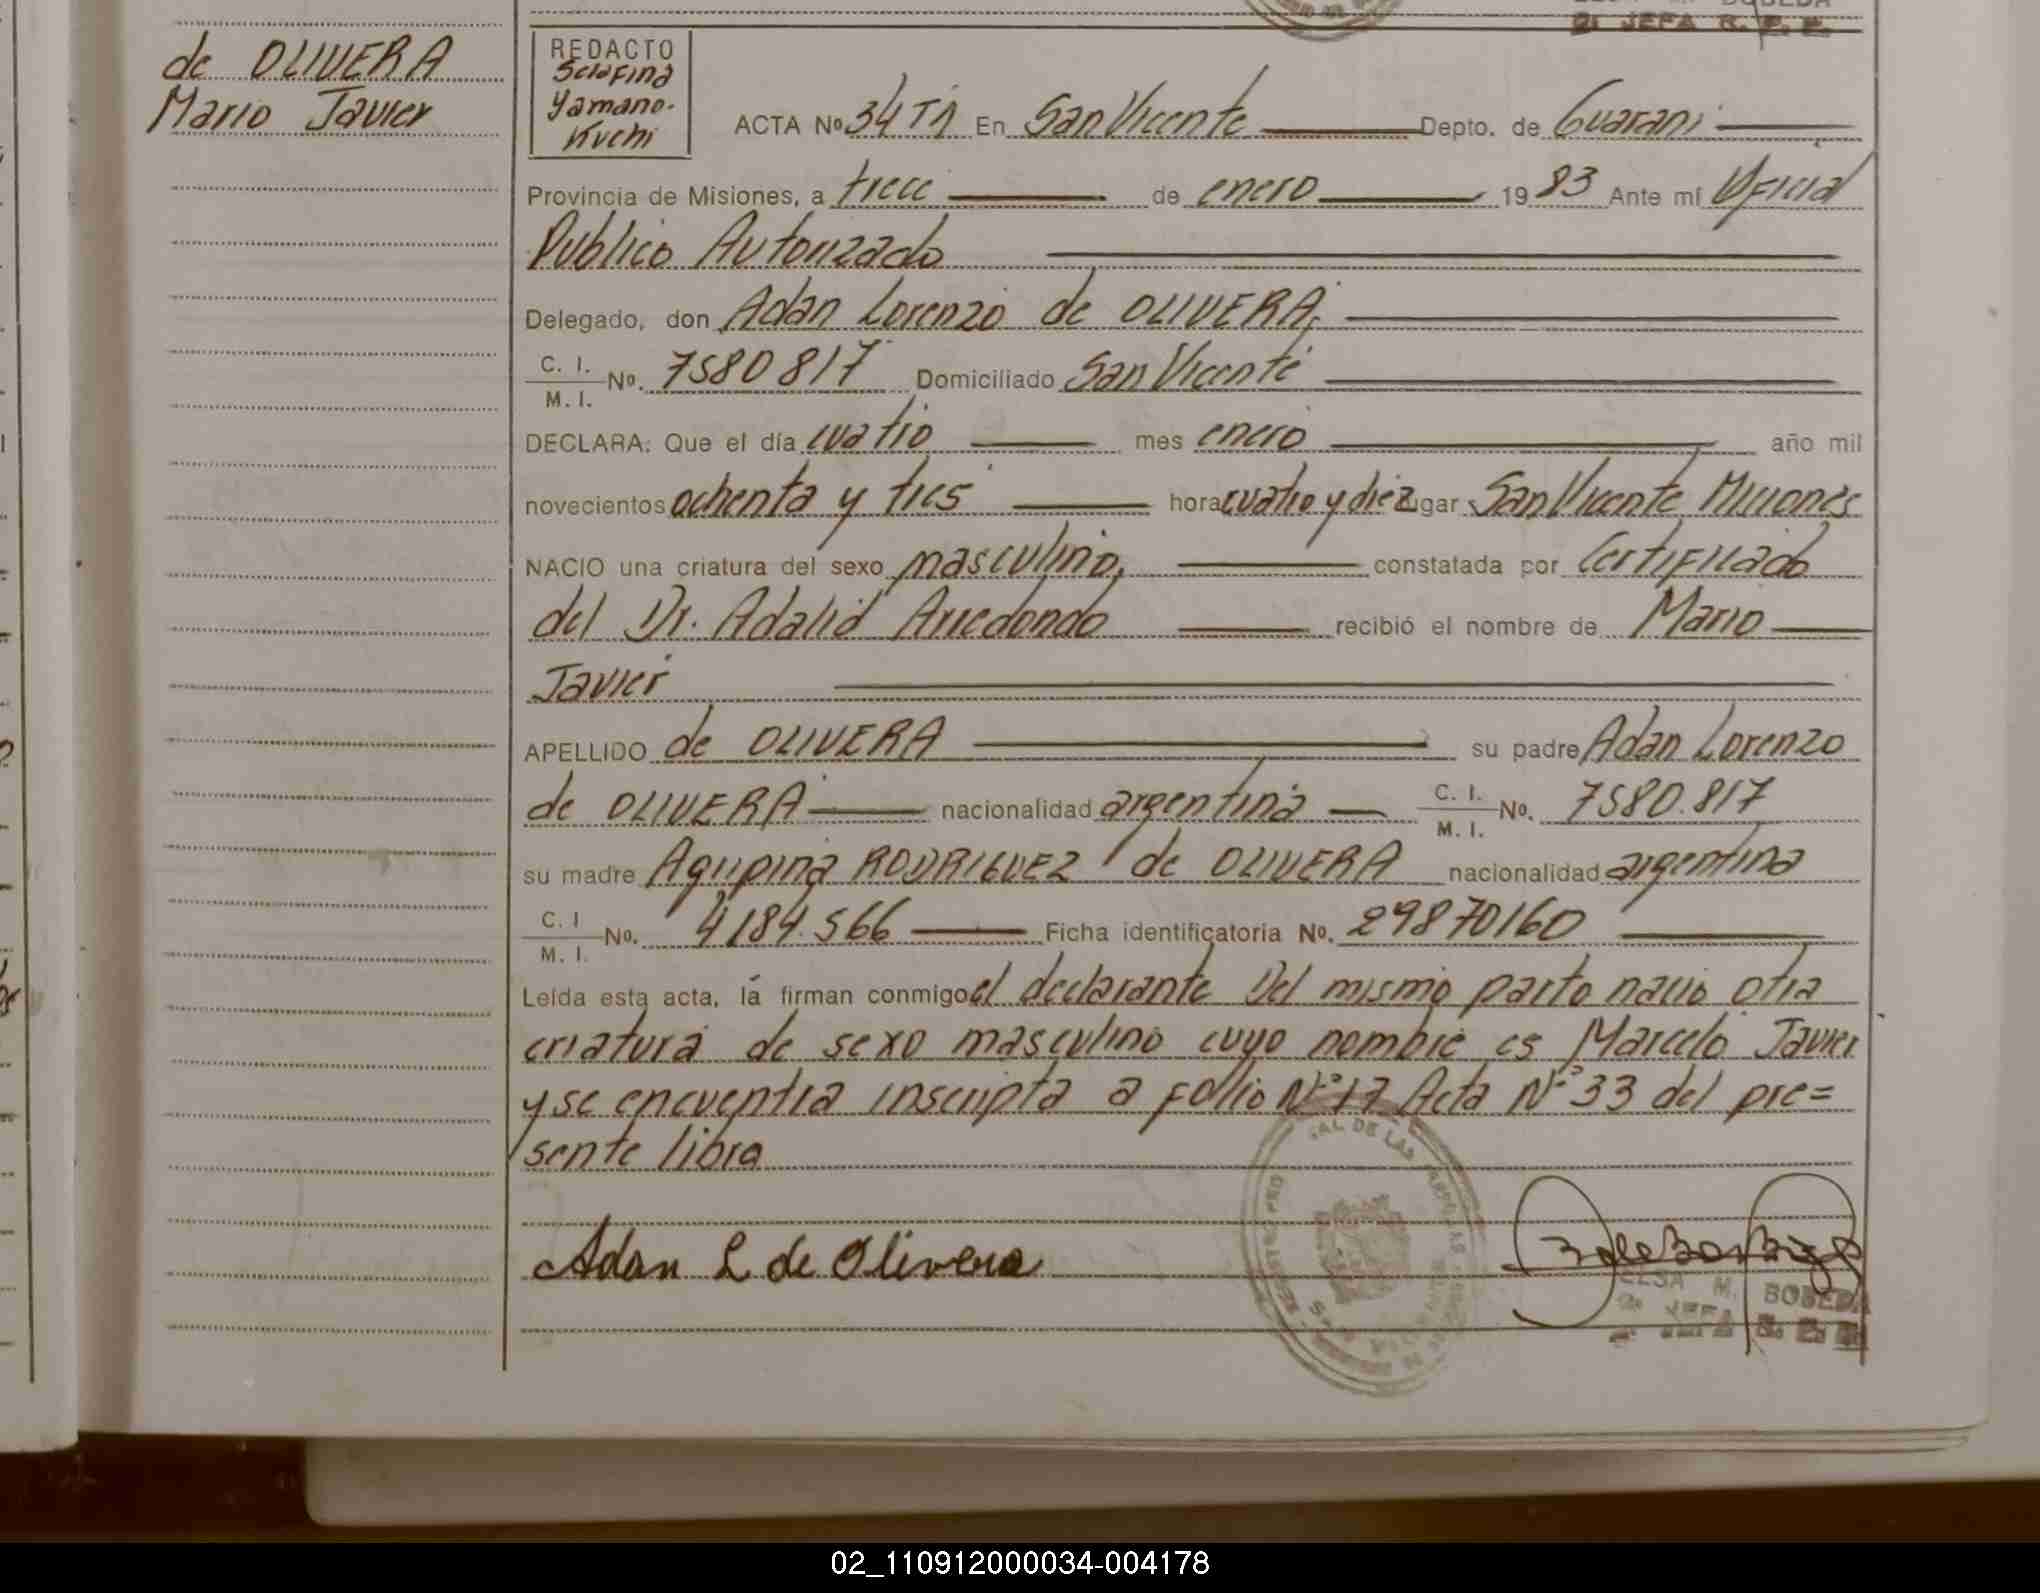 BOBEDA
2ª JEFA R. P. P.
de OLIVERA
Mario Javier
REDACTO
Serafina
Yamano-
Kuchi
ACTA Nº 34 T1 En San Vicente Depto. de Guarani
Provincia de Misiones, a trece de enero 1983 Ante mí Oficial
Publico Autorizado
Delegado, don Adan Lorenzo de OLIVERA,
C. I. / M. I. Nº. 7580817 Domiciliado San Vicente
DECLARA: Que el día cuatro mes enero año mil
novecientos ochenta y tres hora cuatro y diez lugar San Vicente Misiones
NACIO una criatura del sexo masculino, constatada por Certificado
del Dr. Adalid Arredondo recibió el nombre de Mario
Javier
APELLIDO de OLIVERA su padre Adan Lorenzo
de OLIVERA nacionalidad argentina C. I. / M. I. Nº. 7580.817
su madre Agripina RODRIGUEZ de OLIVERA nacionalidad argentina
C. I / M. I. Nº. 4184.566 Ficha identificatoria Nº. 29870160
Leída esta acta, la firman conmigo el declarante Del mismo parto nacio otra
criatura de sexo masculino cuyo nombre es Marcelo Javier
y se encuentra inscripta a folio Nº 17 Acta Nº 33 del pre=
sente libro
Adan L de Olivera
ELSA M. BOBEDA
2ª JEFA R. P. P.
02_110912000034-004178